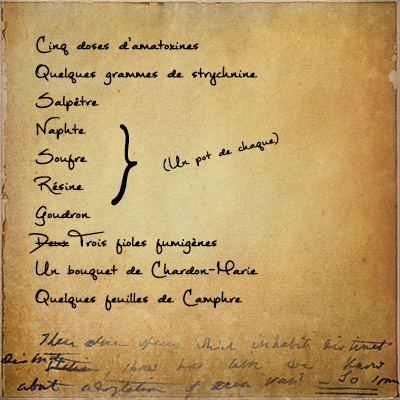 Cinq doses d'amatoxines
Quelques grammes de strychnine
Salpêtre
Naphte
Soufre
(Un pot de chaque)
Résine
Goudron
Deux Trois fioles fumigènes
Un bouquet de Chardon-Marie
Quelques feuilles de Camphre
which inhabit distinct
know
about adaptation of